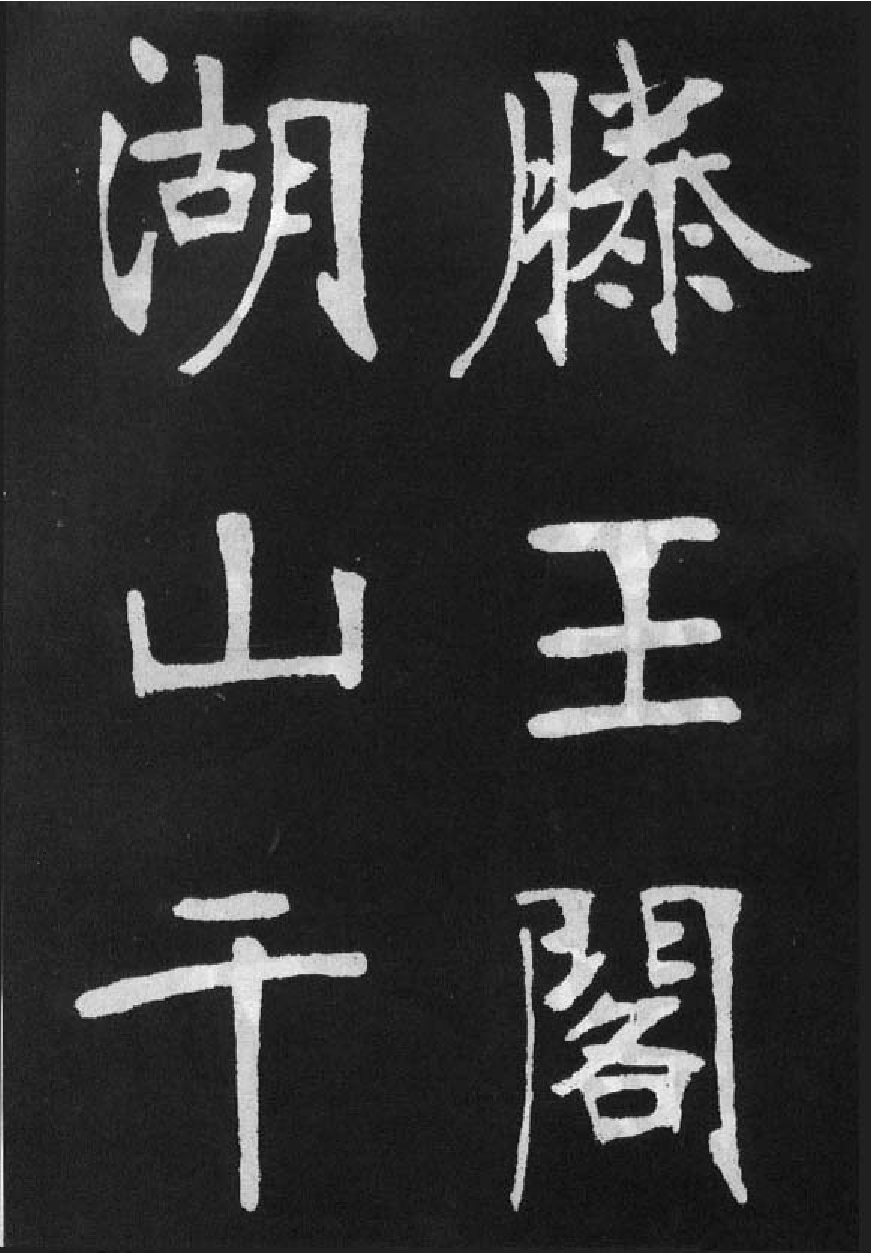 滕王閣
湖山干